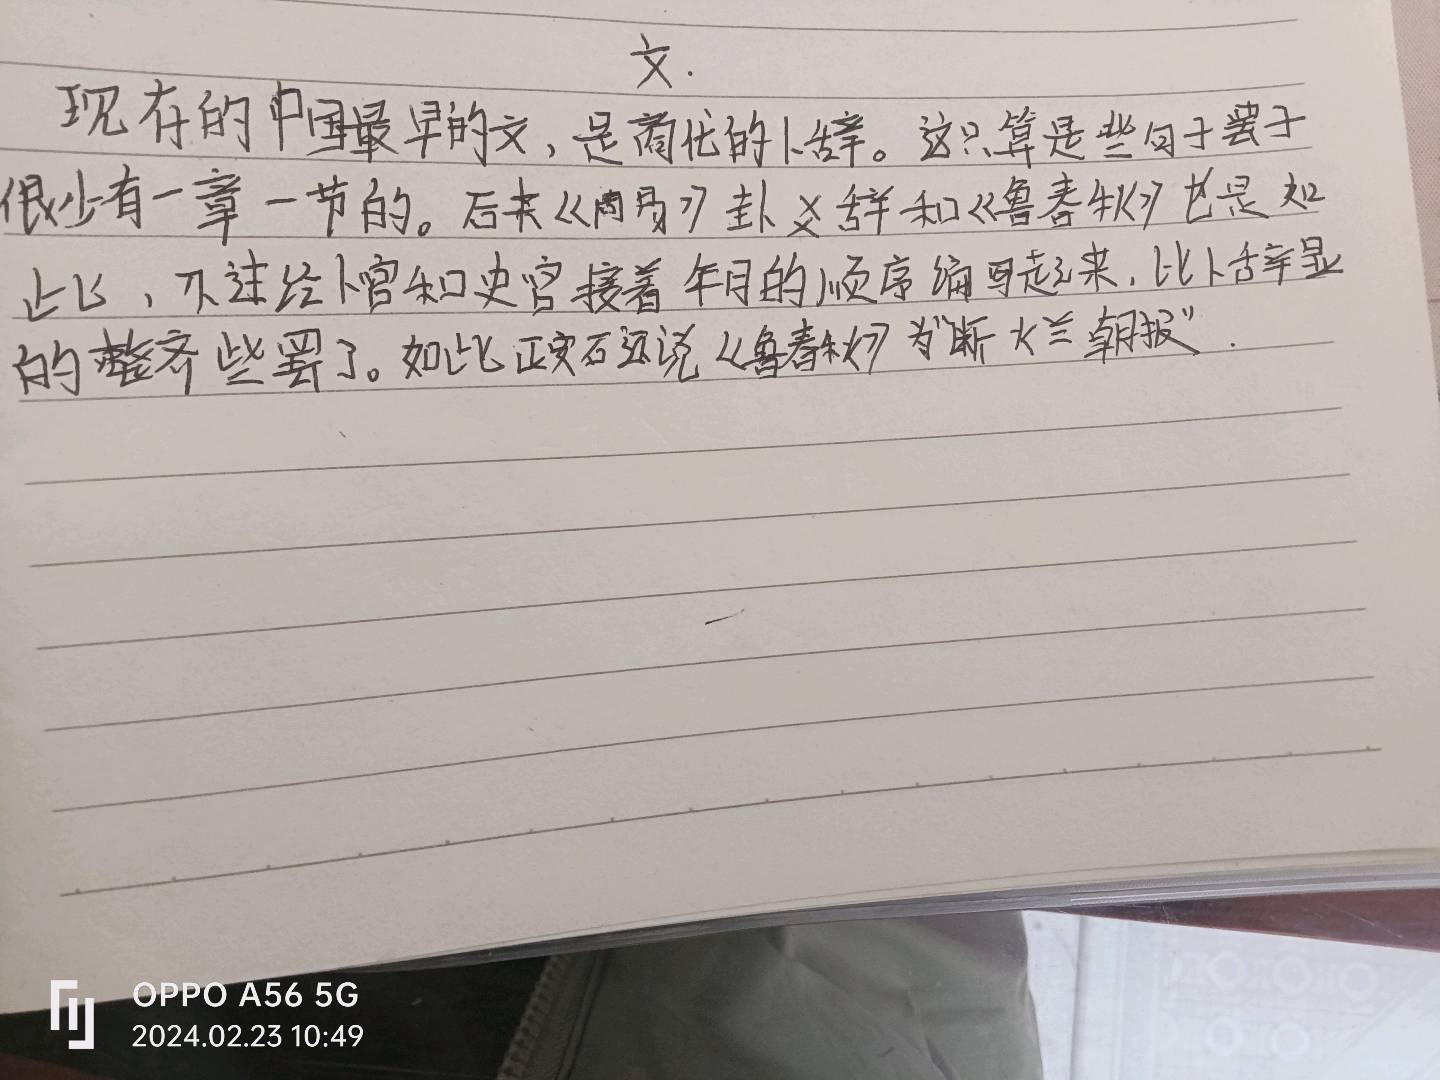 文.
现存的中国最早的文,是商代的卜辞。这只算是些句子罢于
很少有一章一节的。后来《周易》卦爻辞和《鲁春秋》也是如
此,不过经卜官和史官接着年月的顺序编写起来,比卜辞显
的整齐些罢了。如此王安石还说《鲁春秋》为"断大兰朝报".
OPPO A56 5G
2024.02.23 10:49